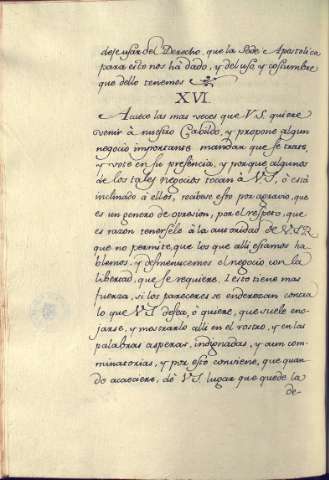 de usar del Derecho, que la Sede Apostolica
para esto nos ha dado, y del uso y costumbre
que dello tenemos
XVI.
Acaece las mas veces que V.S. quiere
venir à nuestro Cabildo, y propone algun
negocio importante mandar que se trate
y vote en su presencia, y porque algunos
de los tales negocios tocan à V.S. ò està
inclinado a ellos, recibese esto por agravio, que
es un genero de opresion, por el respeto, que
es razon tenersele à la autoridad de V.S.R.
que no permite, que los que alli estamos ha-
blemos, y desmenucemos el negocio con la
libertad, que se requiere. I esto tiene mas
fuerza, si los pareceres se enderezan contra
lo que V.S. desea, ò quiere, que suele eno-
jarse, y mostrarlo alli en el rostro, y en las
palabras asperas, indignadas, y aun com-
minatorias, y por esto conviene, que quan-
do acaeciere, dè V.S. lugar que quede la
de-